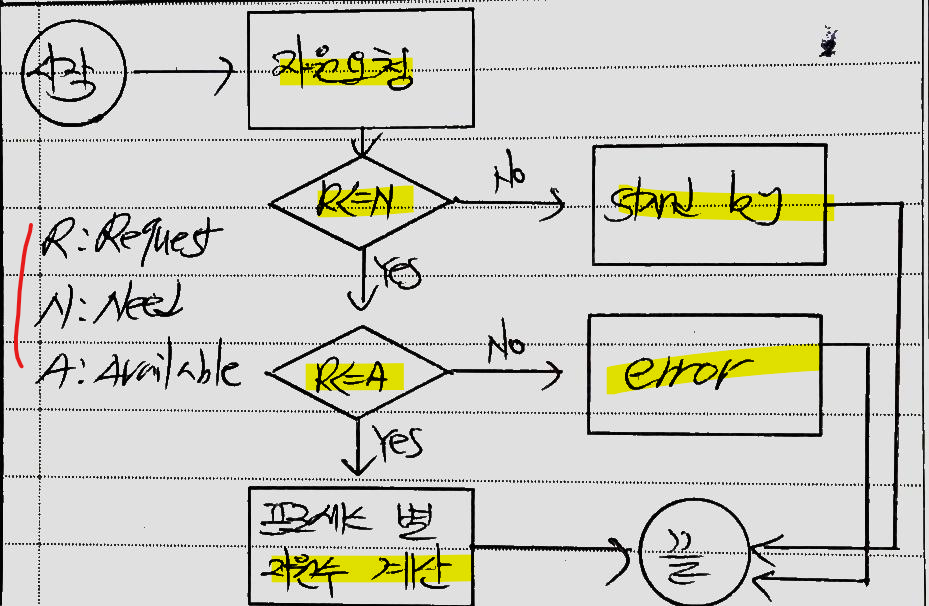 시작
자원요청
R<=N
No
stand by
R:Request
Yes
N:Need
A:Available
R<=A
No
error
Yes
프로세스 별
자원수 계산
끝